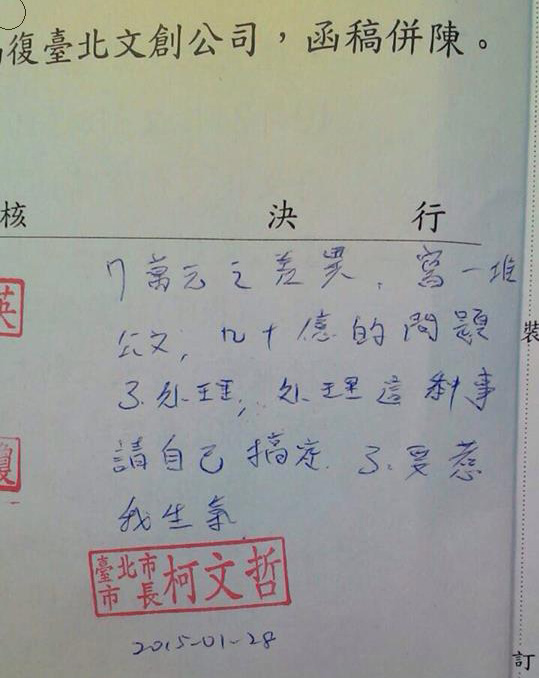 復臺北文創公司，函稿併陳。
核 決 行
7萬元之差異，寫一堆
公文，几十億的問題
不处理，处理這種事
請自己搞定，不要惹
我生氣。
英
裝
臺北市市長柯文哲
2015-01-28
訂